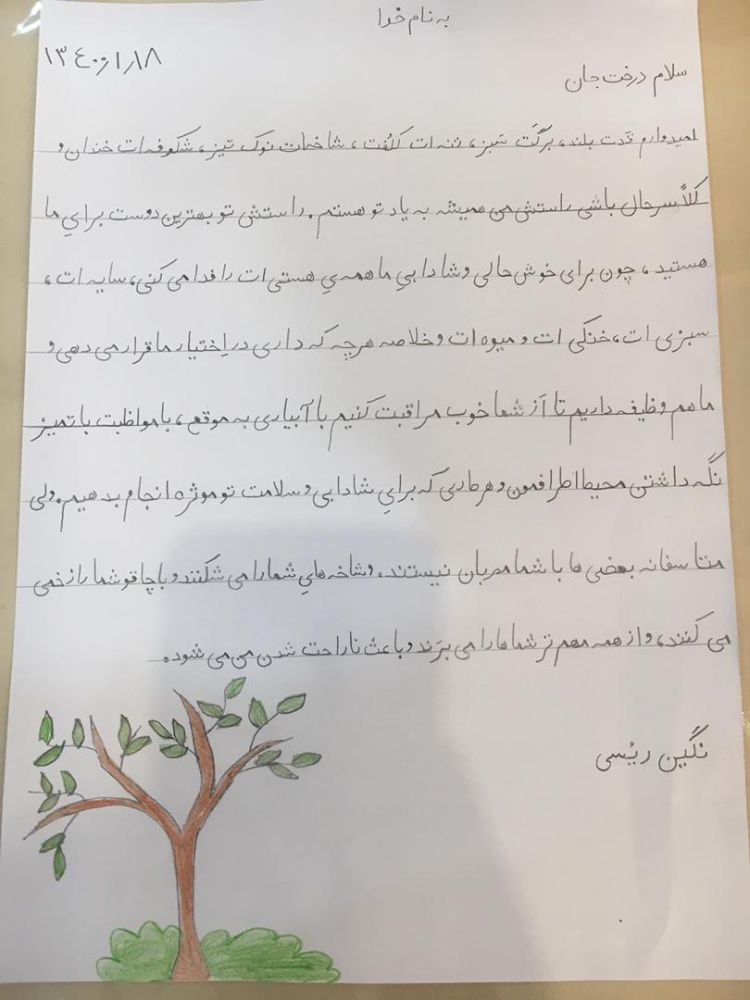 به نام خدا
۱۳۴۰۰/۱/۱۸
سلام درخت جان
امیدوارم قدت بلند، برگت سبز، تنه ات کلفت، شاخه‌ات نوک تیز، شکوفه ات خندان و
کلاً سرحال باشی راستش من همیشه به یاد تو هستم. راستش تو بهترین دوست برایِ ما
هستید، چون برای خوش حالی و شادابیِ ما همه‌یِ هستی ات را فدا می کنی، سایه ات،
سبزی ات، خنکی ات و میوه ات و خلاصه هرچه که داری در اختیار ما قرار می دهی و
ما هم وظیفه داریم تا از شما خوب مراقبت کنیم با آبیاری به موقع، با مواظبت با تمیز
نگه داشتن محیط اطرافمون و هر کاری که برایِ شادابی و سلامت تو موثره انجام بدهیم. ولی
متاسفانه بعضی ها با شما مهربان نیستند. و شاخه هایِ شما را می شکنند و با چاقو شما را زخمی
می کنند، و از همه مهم تر شماها را می برند و باعث ناراحت شدن من می شود.
نگین رئیسی